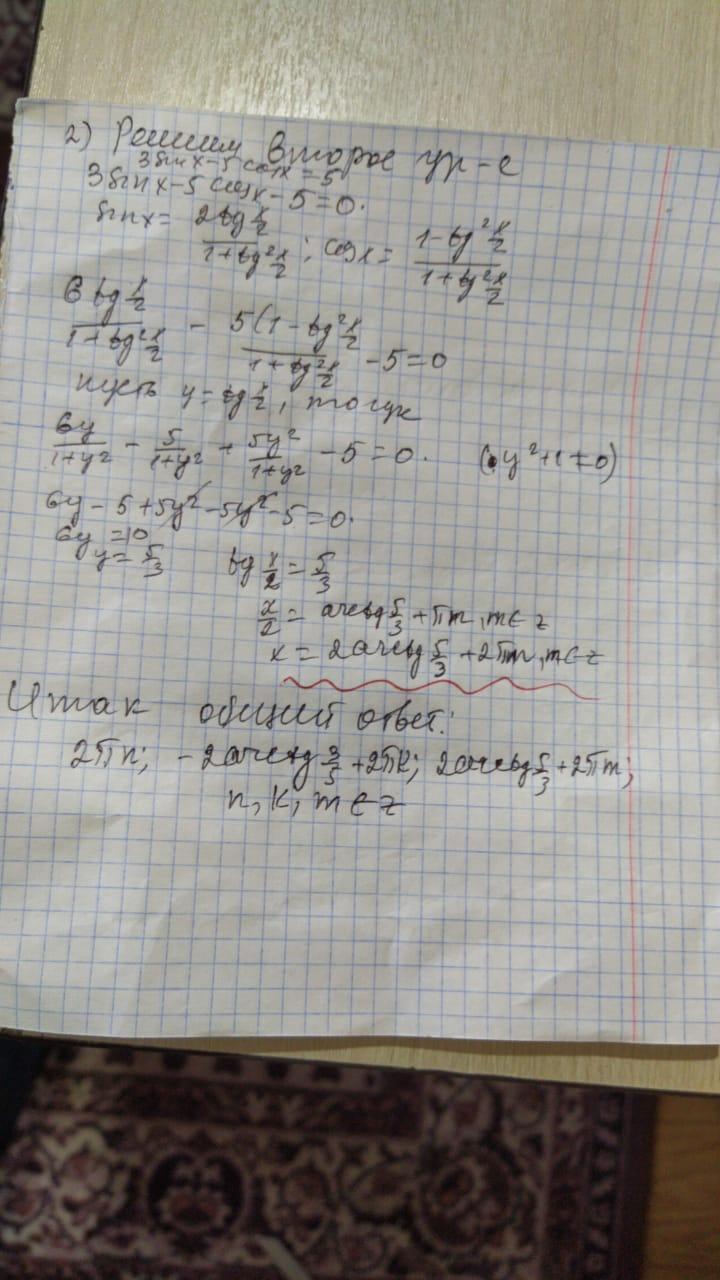 2) Решим второе ур-е
3sinx-5cosx=5
3sinx-5cosx-5=0.
sinx= 2tg x/2 / 1+tg² x/2 ; cosx= 1-tg² x/2 / 1+tg² x/2
6tg x/2 / 1+tg² x/2 - 5(1-tg² x/2 / 1+tg² x/2 -5=0
пусть y=tg x/2, тогда
6y/1+y² - 5/1+y² + 5y²/1+y² -5=0. (y²+1≠0)
6y-5+5y²-5y²-5=0.
6y=10
y=5/3 tg x/2 = 5/3
x/2 = arctg 5/3 +πm, m∈z
x=2arctg 5/3 +2πm, m∈z
Итак общий ответ:
2πn; -2arctg 3/5 +2πk; 2arctg 5/3 +2πm;
n, k, m∈z